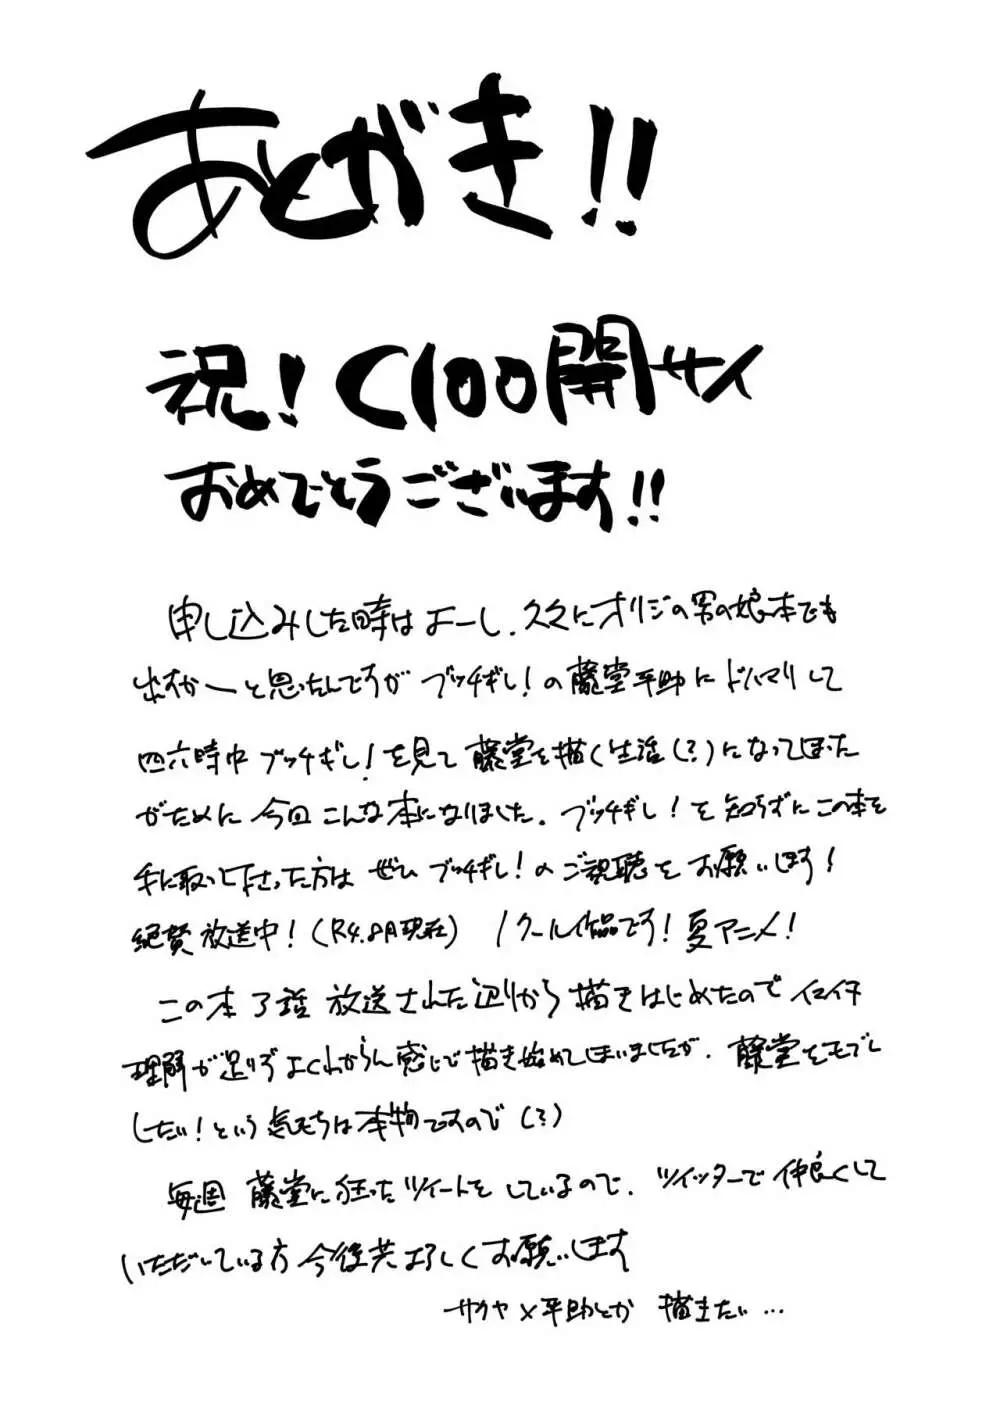 あとがき!!
祝!C100開サイ
おめでとうございます!!
申し込みした時はよーし、久々にオリジの男の娘本でも
出すかーと思ったんですが ブッチギレ!の藤堂平助にドハマリして
四六時中ブッチギレ!を見て藤堂を描く生活(?)になってしまった
がために今回こんな本になりました。ブッチギレ!を知らずにこの本を
手に取って下さった方は ぜひ ブッチギレ!のご視聴をお願いします!
絶賛放送中!(R4.8月現在) 1クール作品です!夏アニメ!
この本 3話 放送された辺りから描きはじめたので イマイチ
理解が足りず よくわからん感じで描き始めてしまいましたが、藤堂をモブレ
したい!という気持ちは本物ですので(?)
毎週 藤堂に狂ったツイートをしているので、ツイッターで仲良くして
いただいている方 今後共よろしくお願いします
サクヤ×平助とか 描きたい…